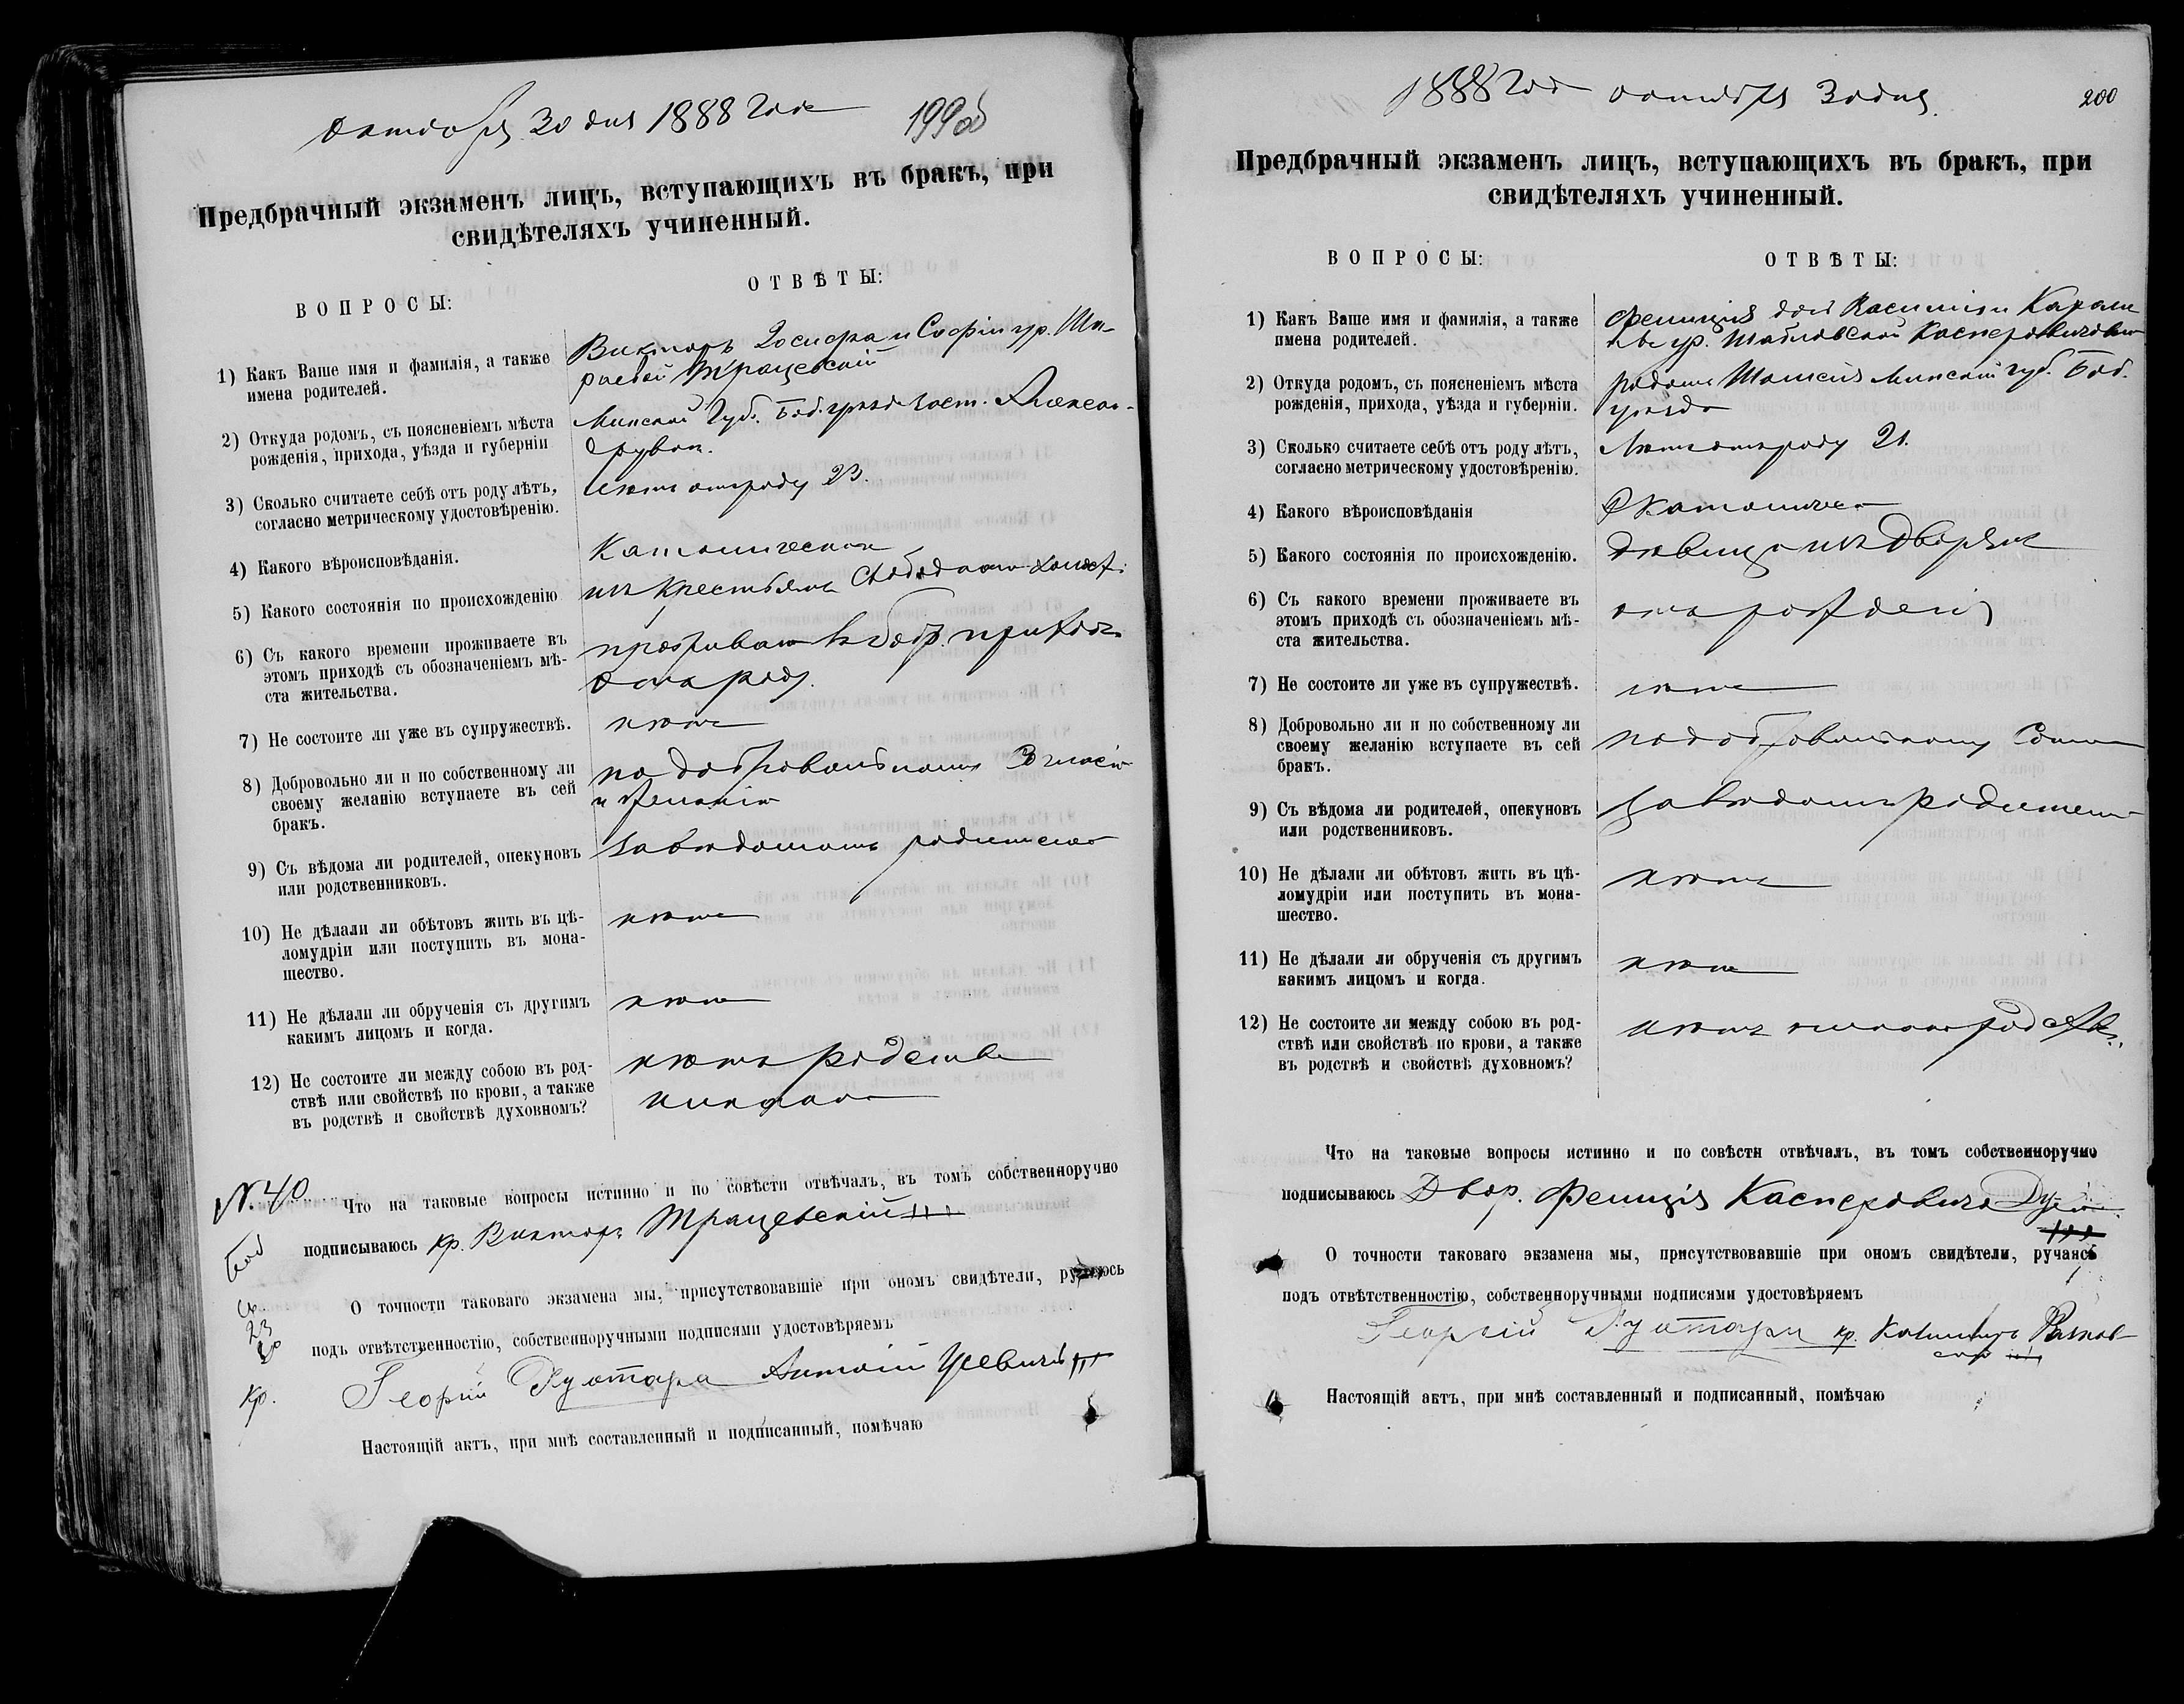 октября 30 дня 1888 года
199об
Предбрачный экзаменъ лицъ, вступающихъ въ бракъ, при
свидѣтеляхъ учиненный.
ВОПРОСЫ:
ОТВѢТЫ:
1) Какъ Ваше имя и фамилія, а также
имена родителей.
Викторъ Іосифа и Софіи ур.
Трацевскій
2) Откуда родомъ, съ поясненіемъ мѣста
рожденія, прихода, уѣзда и губерніи
Минской Губ. Боб. уѣзда
3) Сколько считаете себѣ отъ роду лѣтъ,
согласно метрическому удостовѣренію.
лѣтъ отъ роду 23.
4) Какого вѣроисповѣданія.
5) Какого состоянія по происхожденію
изъ крестьянъ
6) Съ какого времени проживаете въ
этомъ приходѣ съ обозначеніемъ мѣ-
ста жительства.
проживаю въ Боб. приходѣ
7) Не состоите ли уже въ супружествѣ.
нѣтъ
8) Добровольно ли и по собственному ли
своему желанію вступаете въ сей
бракъ.
по добровольному
и желанію
9) Съ вѣдома ли родителей, опекуновъ
или родственниковъ.
за вѣдомомъ родителей
10) Не дѣлали ли обѣтовъ жить въ цѣ-
ломудріи или поступить въ мона-
шество.
нѣтъ
11) Не дѣлали ли обрученія съ другимъ
какимъ лицомъ и когда.
нѣтъ
12) Не состоите ли между собою въ род-
ствѣ или свойствѣ по крови, а также
въ родствѣ и свойствѣ духовномъ?
нѣтъ родства
никакого
N. 40
Что на таковые вопросы истинно и по совѣсти отвѣчалъ, въ томъ собственноручно
подписываюсь кр. Викторъ Трацевскій
О точности таковаго экзамена мы, присутствовавшіе при ономъ свидѣтели, ручаюсь
23
подъ отвѣтственностію, собственноручными подписями удостовѣряемъ
кр.
Георгій Антоній Усевичъ
Настоящій актъ, при мнѣ составленный и подписанный, помѣчаю
1888 года октября 30 дня.
200
Предбрачный экзаменъ лицъ, вступающихъ въ бракъ, при
свидѣтеляхъ учиненный.
ВОПРОСЫ:
ОТВѢТЫ:
1) Какъ Ваше имя и фамилія, а также
имена родителей.
Фелиція дочь
ур.
2) Откуда родомъ, съ поясненіемъ мѣста
рожденія, прихода, уѣзда и губерніи.
родомъ Минской губ. Боб.
уѣзда
3) Сколько считаете себѣ отъ роду лѣтъ,
согласно метрическому удостовѣренію.
Лѣтъ отъ роду 21.
4) Какого вѣроисповѣданія
5) Какого состоянія по происхожденію.
дѣвица изъ Дворянъ
6) Съ какого времени проживаете въ
этомъ приходѣ съ обозначеніемъ мѣ-
ста жительства.
отъ рожденія
7) Не состоите ли уже въ супружествѣ.
нѣтъ
8) Добровольно ли и по собственному ли
своему желанію вступаете въ сей
бракъ.
по добровольному
9) Съ вѣдома ли родителей, опекуновъ
или родственниковъ.
за вѣдомомъ родителей
10) Не дѣлали ли обѣтовъ жить въ цѣ-
ломудріи или поступить въ мона-
шество.
нѣтъ
11) Не дѣлали ли обрученія съ другимъ
какимъ лицомъ и когда.
нѣтъ
12) Не состоите ли между собою въ род-
ствѣ или свойствѣ по крови, а также
въ родствѣ и свойствѣ духовномъ?
нѣтъ никакого родства.
Что на таковые вопросы истинно и по совѣсти отвѣчалъ, въ томъ собственноручно
подписываюсь Двор. Фелиція Касперовичъ
О точности таковаго экзамена мы, присутствовавшіе при ономъ свидѣтели, ручаясь
подъ отвѣтственностію, собственноручными подписями удостовѣряемъ
Георгій кр.
Настоящій актъ, при мнѣ составленный и подписанный, помѣчаю